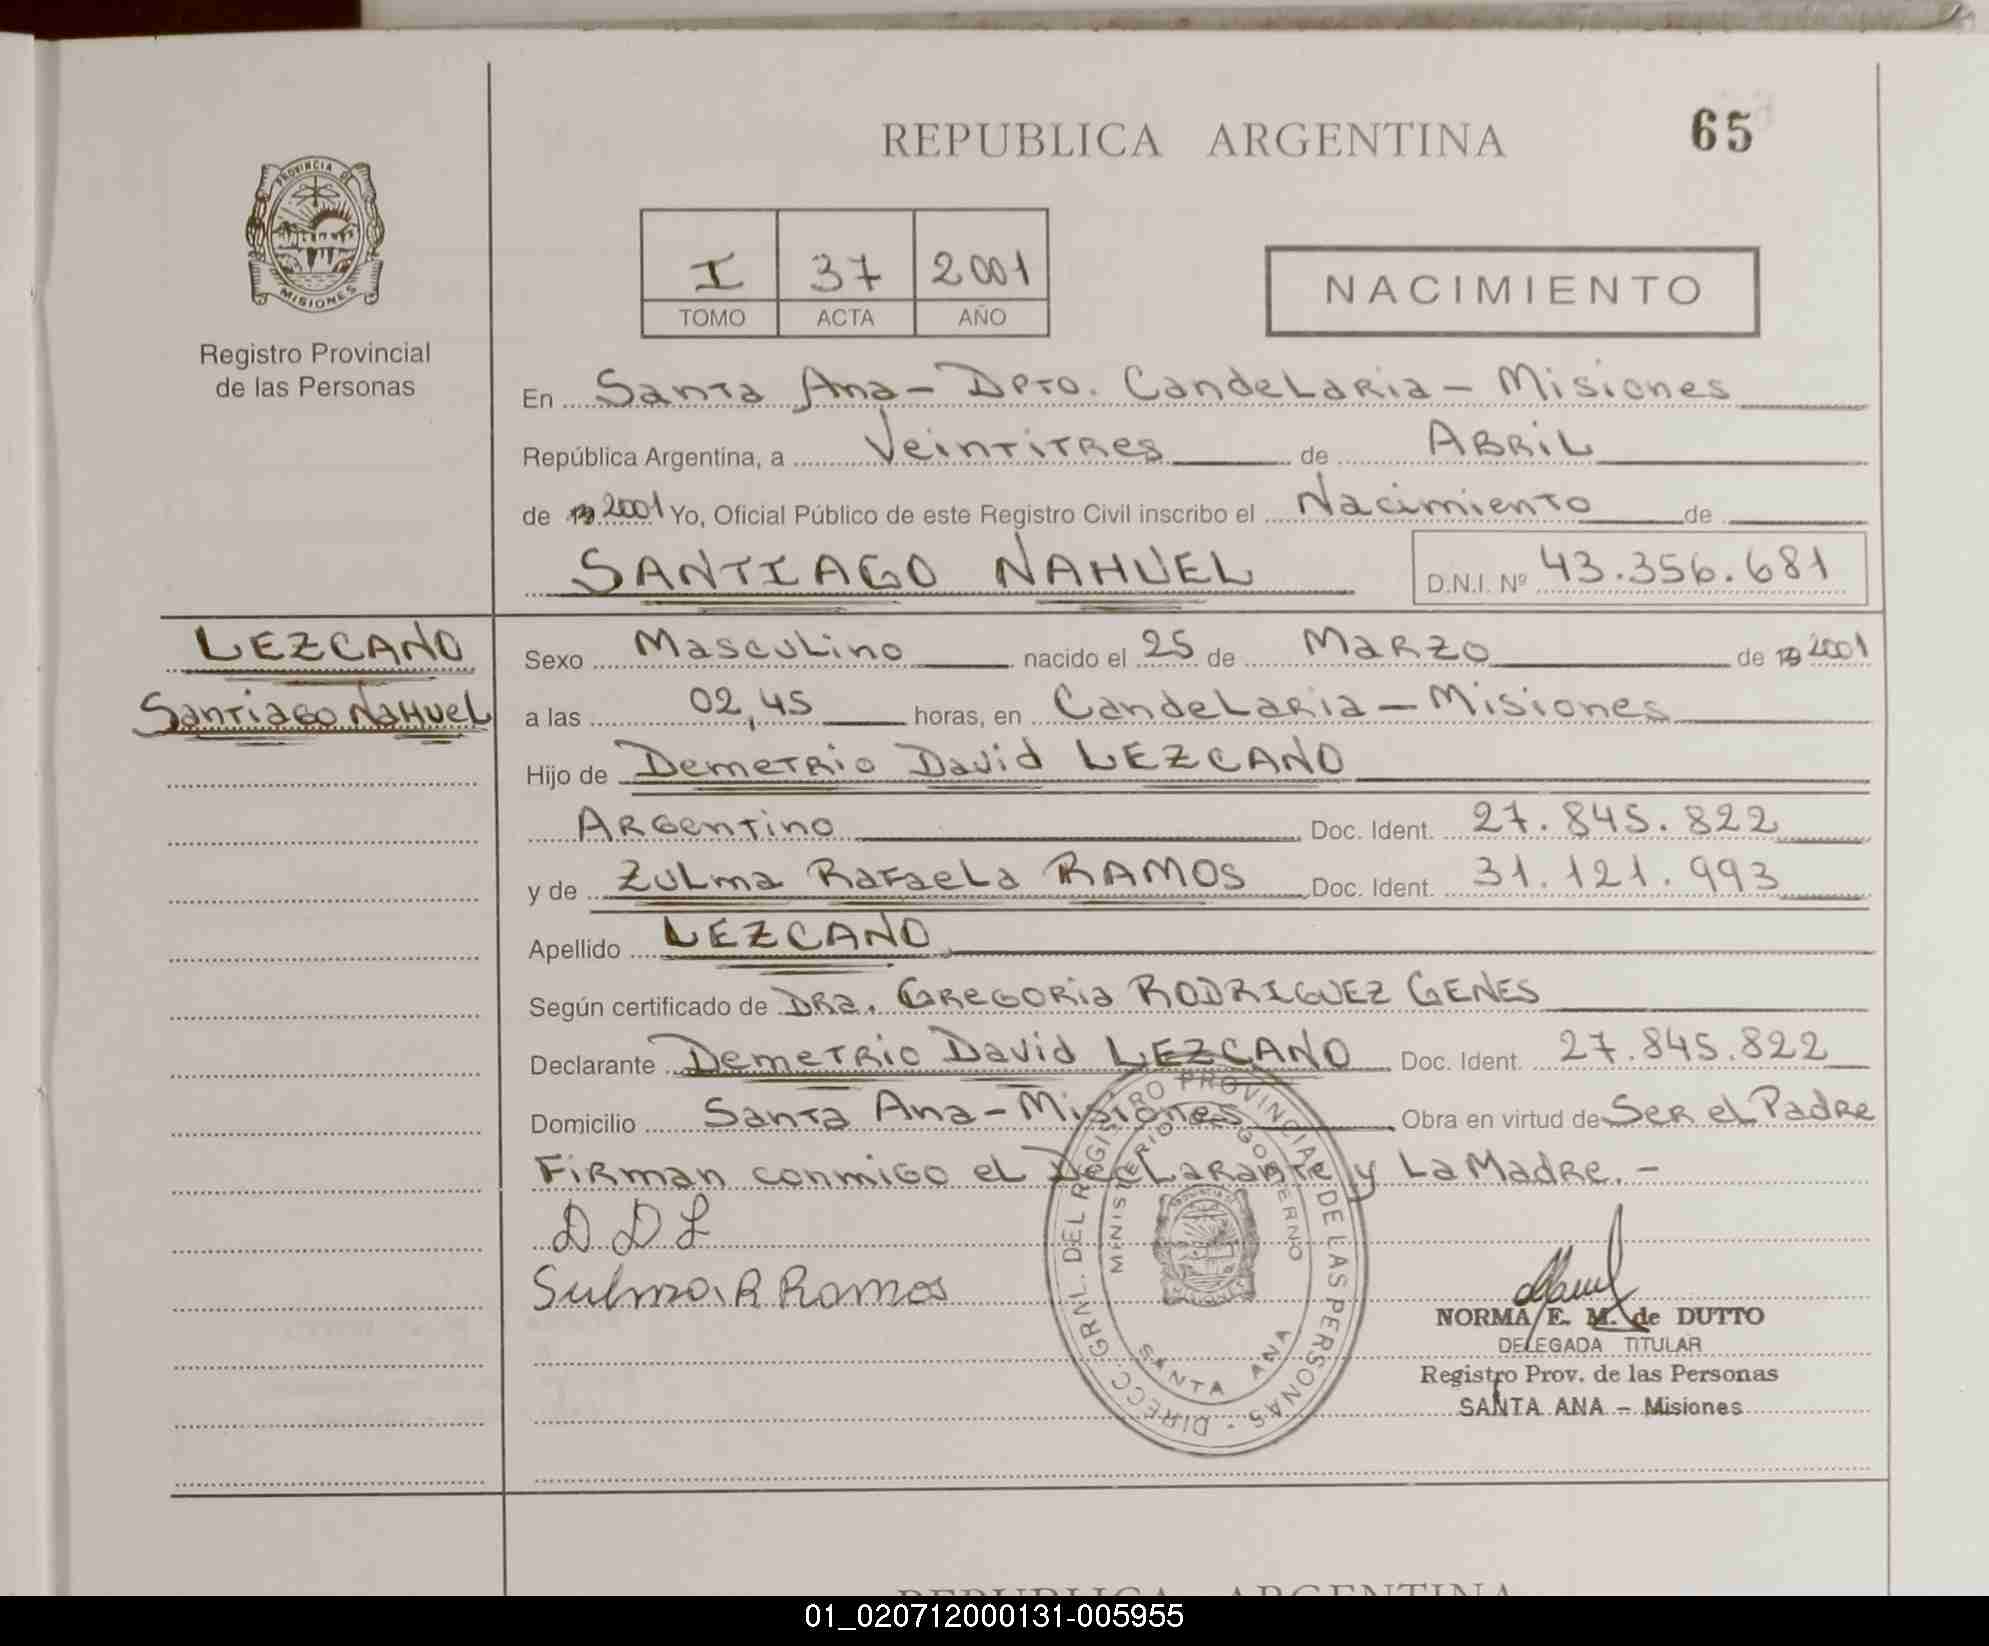 REPUBLICA ARGENTINA
65
PROVINCIA DE MISIONES
Registro Provincial
de las Personas
I 37 2001
TOMO ACTA AÑO
NACIMIENTO
En Santa Ana - Dpto. Candelaria - Misiones
República Argentina, a Veintitres de Abril
de 2001 Yo, Oficial Público de este Registro Civil inscribo el Nacimiento de
SANTIAGO NAHUEL D.N.I. Nº 43.356.681
LEZCANO
Santiago Nahuel
Sexo Masculino nacido el 25 de Marzo de 2001
a las 02,45 horas, en Candelaria - Misiones
Hijo de Demetrio David LEZCANO
Argentino Doc. Ident. 27.845.822
y de Zulma Rafaela RAMOS Doc. Ident. 31.121.993
Apellido LEZCANO
Según certificado de Dra. Gregoria RODRIGUEZ GENES
Declarante Demetrio David LEZCANO Doc. Ident. 27.845.822
Domicilio Santa Ana - Misiones Obra en virtud de Ser el Padre
Firman conmigo el Declarante y La Madre.-
D D L
Sulma R Ramos
DIRECC GRAL. DEL REGISTRO PROVINCIAL DE LAS PERSONAS -
MINISTERIO DE GOBIERNO
SANTA ANA
NORMA E. M. de DUTTO
DELEGADA TITULAR
Registro Prov. de las Personas
SANTA ANA - Misiones
REPUBLICA ARGENTINA
01_020712000131-005955